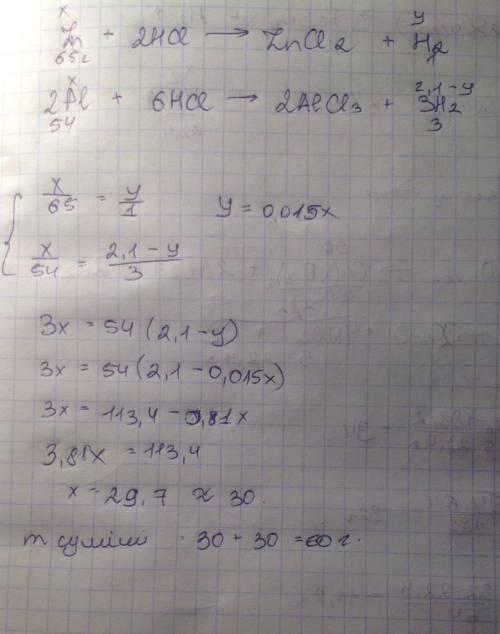 x y
Zn + 2HCl → ZnCl2 + H2
65г 1
x 2,1-y
2Al + 6HCl → 2AlCl3 + 3H2
54 3
x/65 = y/1 y = 0,015x
x/54 = 2,1 - y/3
3x = 54 (2,1 - y)
3x = 54 (2,1 - 0,015x)
3x = 113,4 - 0,81x
3,81x = 113,4
x = 29,7 ≈ 30.
m суміші 30 + 30 = 60 г.